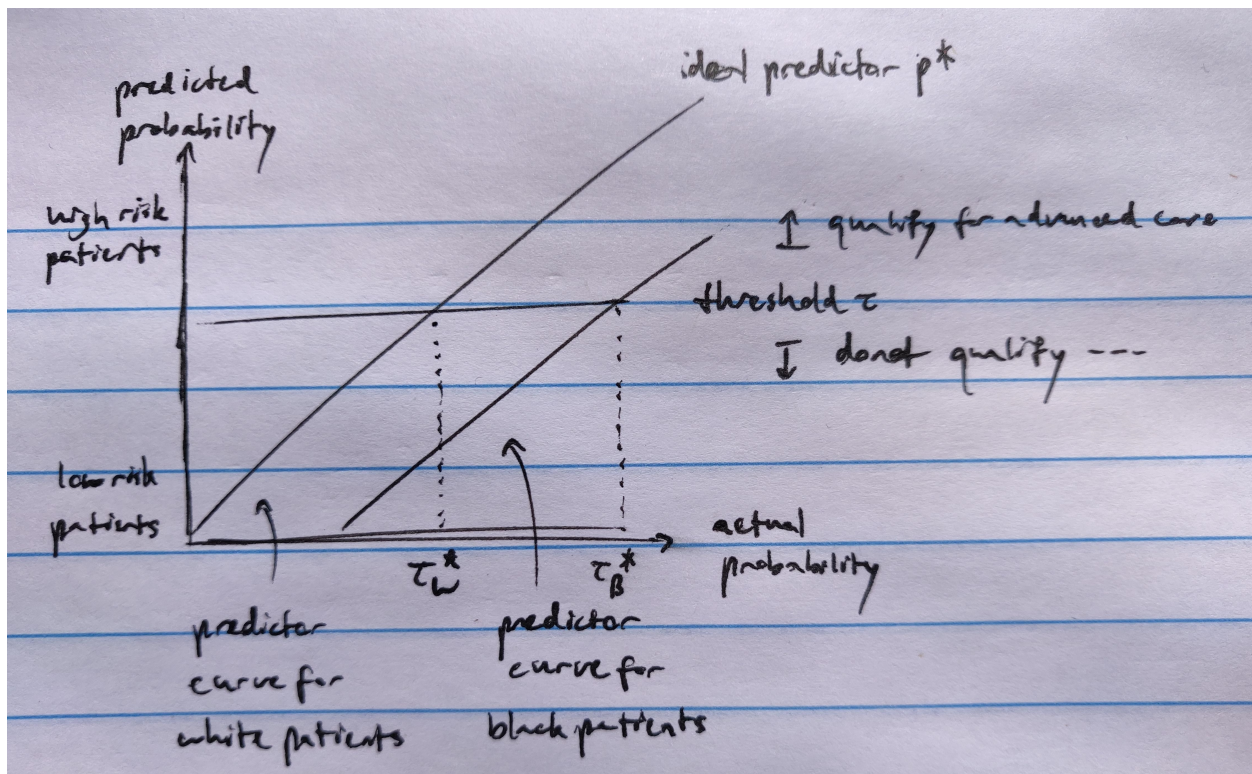 ideal predictor p*
predicted
probability
high risk
patients
↑ qualify for advanced care
threshold τ
↓ do not qualify ---
low risk
patients
actual
probability
τ_W*
τ_B*
predictor
curve for
white patients
predictor
curve for
black patients